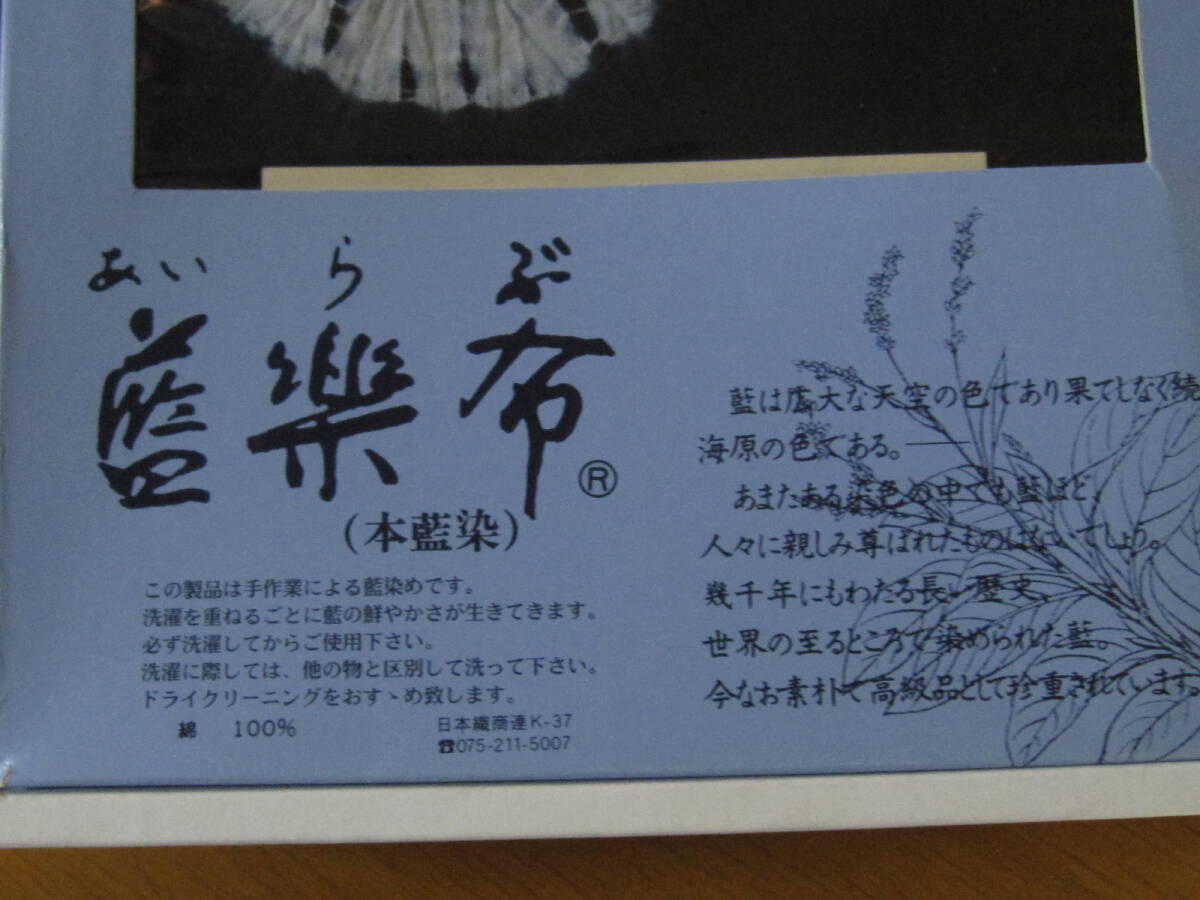 あいらぶ
藍樂布®
(本藍染)
この製品は手作業による藍染めです。
洗濯を重ねるごとに藍の鮮やかさが生きてきます。
必ず洗濯してからご使用下さい。
洗濯に際しては、他の物と区別して洗って下さい。
ドライクリーニングをおすゝめ致します。
綿 100%
日本織商連K-37
☎075-211-5007
藍は広大な天空の色であり果てしなく続
海原の色である。——
あまたある染色の中でも藍ほど、
人々に親しみ尊ばれたものはないでしょう。
幾千年にもわたる長い歴史、
世界の至るところで染められた藍。
今なお素朴で高級品として珍重されています